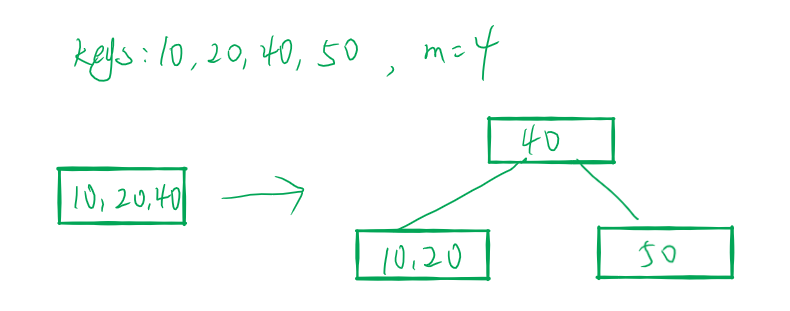 keys: 10, 20, 40, 50 , m=4
40
10, 20, 40
10, 20
50